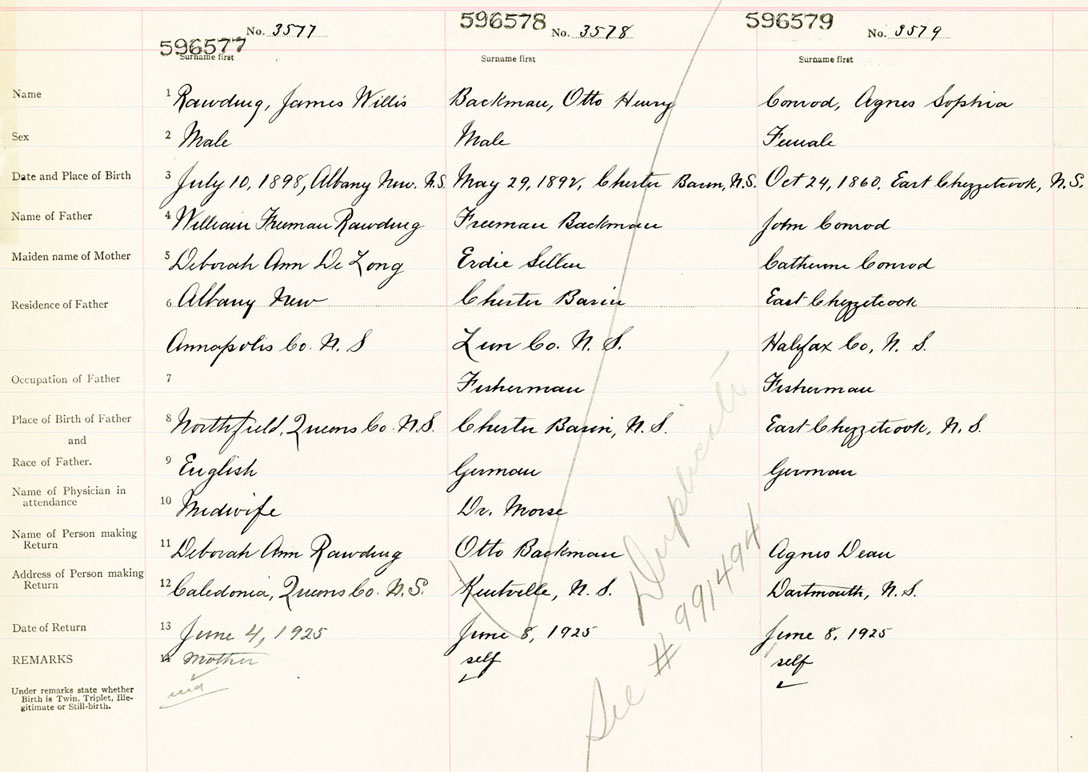 596577 No. 3577 596578 No. 3578 596579 No. 3579
Surname first Surname first Surname first
Name 1 Rawding, James Willis Backman, Otto Henry Conrod, Agnes Sophia
Sex 2 Male Male Female
Date and Place of Birth 3 July 10, 1898, Albany New. N.S. May 29, 1892, Chester Basin, N.S. Oct 24, 1860, East Chezzetcook, N.S.
Name of Father 4 William Freeman Rawding Freeman Backman John Conrod
Maiden name of Mother 5 Deborah Ann De Long Erdie Sellen Catherine Conrod
Residence of Father 6 Albany New Chester Basin East Chezzetcook
Annapolis Co. N.S Lun Co. N.S. Halifax Co, N.S.
Occupation of Father 7 Fisherman Fisherman
Place of Birth of Father 8 Northfield, Queens Co. N.S. Chester Basin, N.S. East Chezzetcook, N.S.
and
Race of Father. 9 English German German
Name of Physician in
attendance 10 Midwife Dr. Morse
Name of Person making
Return 11 Deborah Ann Rawding Otto Backman Agnes Dean
Address of Person making
Return 12 Caledonia, Queens Co. N.S. Kentville, N.S. Dartmouth, N.S.
Date of Return 13 June 4, 1925 June 8, 1925 June 8, 1925
REMARKS 14 Mother self self
Under remarks state whether
Birth is Twin, Triplet, Ille-
gitimate or Still-birth.
Duplicate
See # 991494